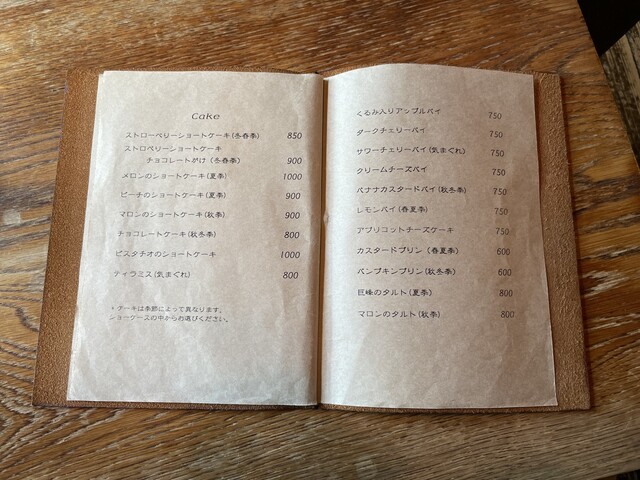 Cake
ストローベリーショートケーキ(冬春季) 850
ストロベリーショートケーキ
チョコレートがけ (冬春季) 900
メロンのショートケーキ(夏季) 1000
ピーチのショートケーキ(夏季) 900
マロンのショートケーキ(秋季) 900
チョコレートケーキ(秋冬季) 800
ピスタチオのショートケーキ 1000
ティラミス(気まぐれ) 800
*ケーキは季節によって異なります。
ショーケースの中からお選びください。
くるみ入りアップルパイ 750
ダークチェリーパイ 750
サワーチェリーパイ(気まぐれ) 750
クリームチーズパイ 750
バナナカスタードパイ(秋冬季) 750
レモンパイ(春夏季) 750
アプリコットチーズケーキ 750
カスタードプリン (春夏季) 600
パンプキンプリン(秋冬季) 600
巨峰のタルト(夏季) 800
マロンのタルト(秋季) 800